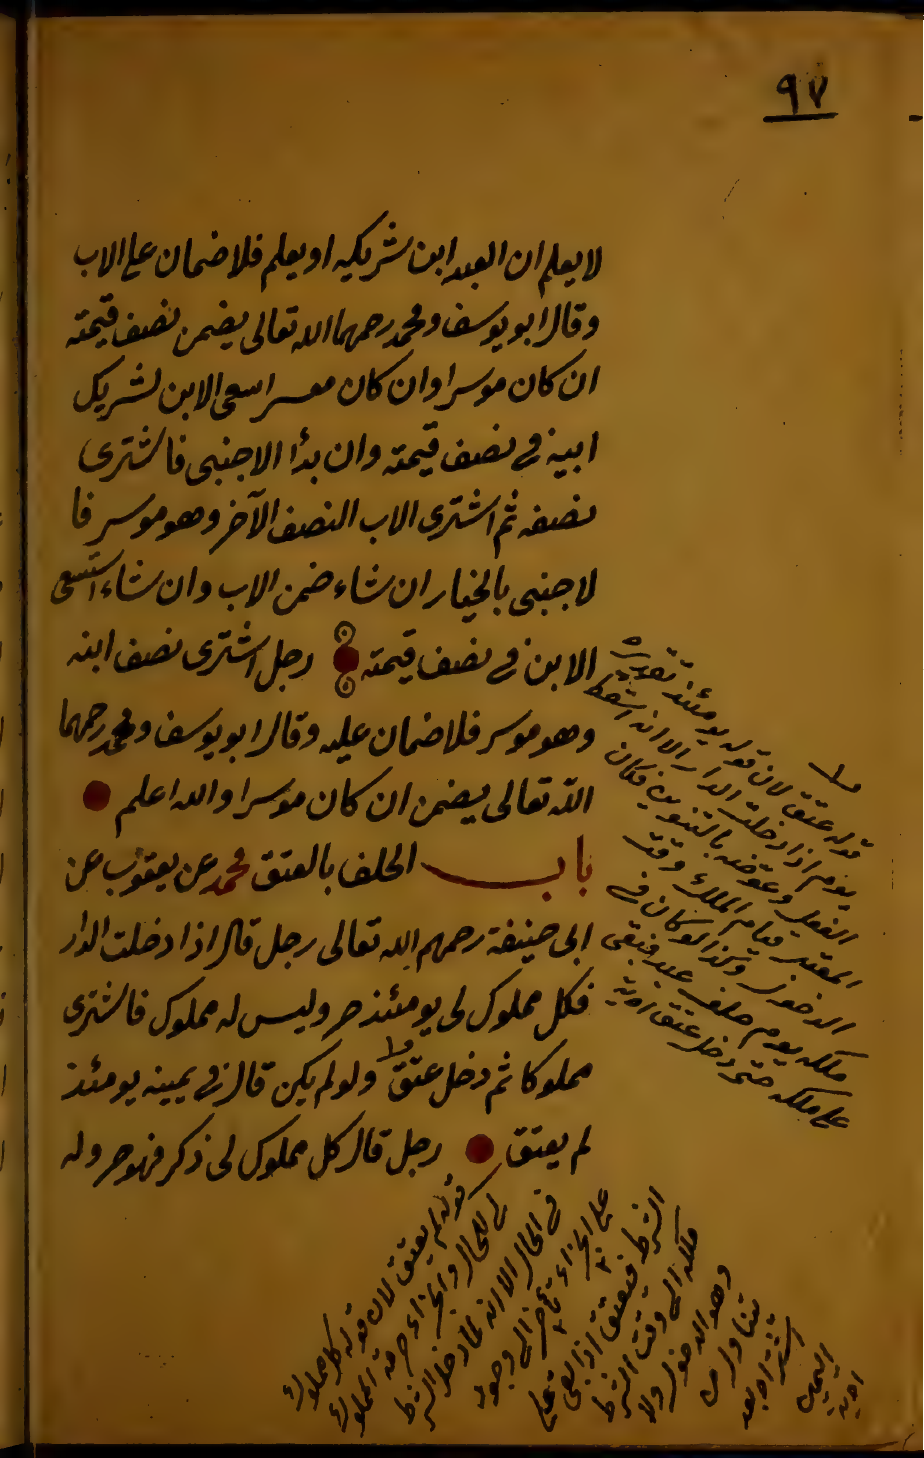 ٩٧
لا يعلم ان العبد ابن شريكه او يعلم فلا ضمان على الاب
وقال ابو يوسف ومحمد رحمهما الله تعالى يضمن نصف قيمته
ان كان موسرا وان كان معسرا سعى الابن لشريك
ابيه في نصف قيمته وان بدأ الاجنبي فاشترى
نصفه ثم اشترى الاب النصف الآخر وهو موسر فا
لاجنبي بالخيار ان شاء ضمن الاب وان شاء استسعى
الابن في نصف قيمته رجل اشترى نصف ابنه
وهو موسر فلا ضمان عليه وقال ابو يوسف ومحمد رحمهما
الله تعالى يضمن ان كان موسرا والله اعلم
باب الحلف بالعتق محمد عن يعقوب عن
ابى حنيفة رحمهم الله تعالى رجل قال اذا دخلت الدار
فكل مملوك لى يومئذ حر وليس له مملوك فاشترى
مملوكا ثم دخل عتق ولو لم يكن قال في يمينه يومئذ
لم يعتق رجل قال كل مملوك لى ذكر فهو حر وله
قوله عتق لان قوله يومئذ تقديره
يوم اذا دخلت الدار الا انه اسقط
الفعل وعوضه بالتنوين فكان
المعتبر قيام الملك وقت
الدخول وكذا لو كان في
ملكه يوم حلف عبد فبقى
على ملكه حتى دخل عتق
قوله لم يعتق لان قوله كل مملوك
لى للحال والجزاء حرية المملوك
في الحال الا انه لما دخل الشرط
على الجزاء تأخر الى وجود
الشرط فيعتق اذا بقى على
ملكه الى وقت الشرط
وهو الدخول ولا
يتناول من
اشتراه بعد
اليمين